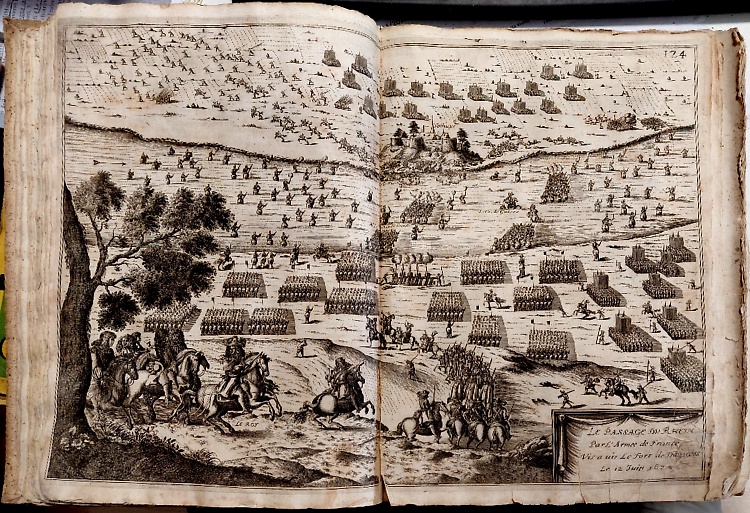 174
LE ROY
LE PASSAGE DU RHEIN
Par L'Armee de France,
Vis a vis Le Fort de
Le 12 Juin 167